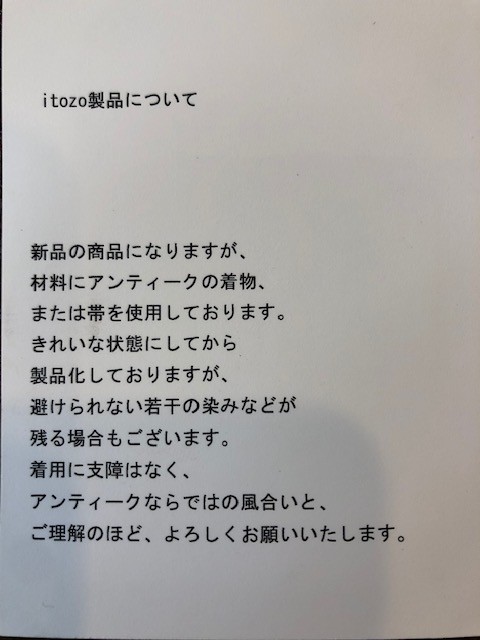 itozo製品について
新品の商品になりますが、
材料にアンティークの着物、
または帯を使用しております。
きれいな状態にしてから
製品化しておりますが、
避けられない若干の染みなどが
残る場合もございます。
着用に支障はなく、
アンティークならではの風合いと、
ご理解のほど、よろしくお願いいたします。